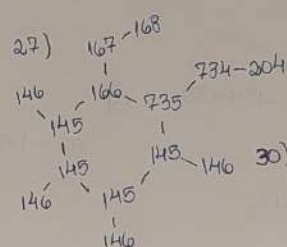 27) 167-168
146 166 735 734-204
145
145 145 146 30)
146 145
146